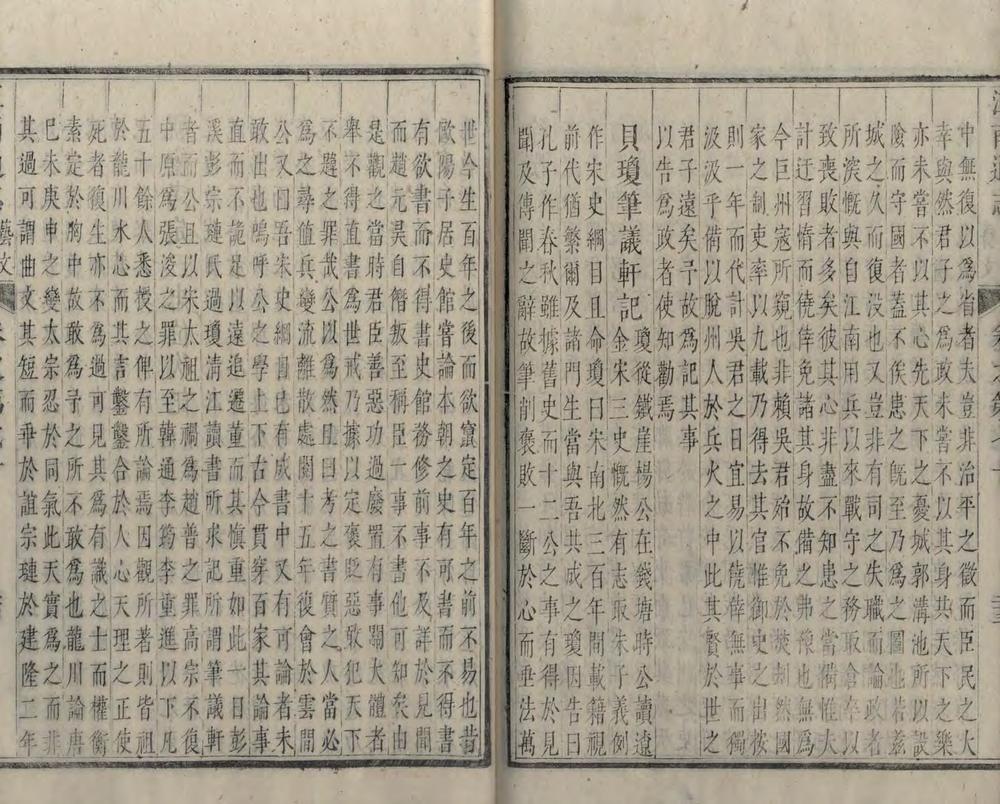 中無復以爲省者夫豈非治平之徵而臣民之大
幸與然君子之爲政未嘗不以其身共天下之樂
亦未嘗不以其心先天下之憂城郭溝池所以設
險而守國者蓋不俟患之旣至乃爲之圖也若茲
城之久而復没也又豈非有司之失職而論政者
所深慨與自江南用兵以來戰守之務取倉卒以
致喪敗者多矣彼其心非盡不知患之當備惟夫
計迂習惰而僥倖免諸其身故其備之弗豫也無爲
今巨州寇所窺也非賴吳君殆不免於焚刦然國
家之制吏率以九載乃得去其官惟御史之出按
則一年而代計吳君之日宜易以僥倖無事而獨
汲汲乎備以脫州人於兵火之中此其賢於世之
君子遠矣予故爲記其事
以告爲政者使知勸焉
貝瓊筆議軒記瓊從鐵崖楊公在錢塘時公讀遼
金宋三史慨然有志取朱子義例
作宋史綱目且命瓊曰宋南北三百年間載籍視
前代猶繁爾及諸門生當與吾共成之瓊因告曰
孔子作春秋雖據舊史而十二公之事有得於見
聞及傳聞之辭故筆削褒敗一斷於心而垂法萬
世今生百年之後而欲竄定百年之前不易也昔
歐陽子居史館嘗論本朝之史有可書而不得書
有欲書而不得書史館務修前事不及詳於見聞
而趙元昊自僭叛至稱臣一事不書他可知矣由
是觀之當時君臣善惡功過廢置有事關大體者
舉不得直書爲世戒乃據以定褒貶惡敢犯天下
不韙之罪哉公以爲然且曰考之書質之人當必
爲之尋值兵變流離散處閱十五年復會於雲間
公又曰吾宋史綱目已有成書中又有可論者未
敢出也嗚呼公之學上下古今貫穿百家其論事
直而不詭足以遠追遷董而其愼重如此一日彭
溪彭宗璉氏過瓊清江讀書所求記所謂筆議軒
者而公且以宋太祖之禍爲趙普之罪高宗不復
中原爲張浚之罪以至韓通李筠李重進以下凡
五十餘人悉授之俾有所論焉因觀所著則皆祖
於龍川水心而其吉鑿鑿合於人心天理之正使
死者復生亦不爲過可見其爲有識之士而權衡
素定於胸中故敢爲予之所不敢爲也龍川論唐
巳未庚申之變太宗忍於同氣此天實爲之而非
其過可謂曲文其短而垂於誼宗璉於建隆二年